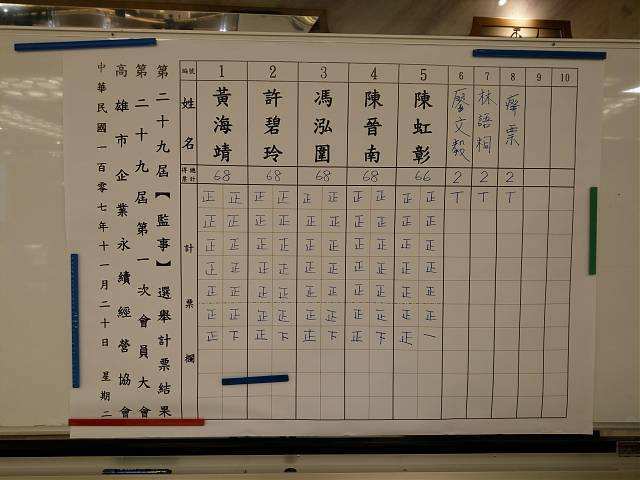 第二十九屆【監事】選舉計票結果
第二十九屆第一次會員大會
高雄市企業永續經營協會
中華民國一百零七年十一月二十日 星期二
編號 1 2 3 4 5 6 7 8 9 10
姓名 黃海靖 許碧玲 馮泓圍 陳晉南 陳虹彰 廖文毅 林語桐 廢票
總計得票 68 68 68 68 66 2 2 2
計票欄
正正 正正 正正 正正 正正 丅 丅 丅
正正 正正 正正 正正 正正
正正 正正 正正 正正 正正
正正 正正 正正 正正 正正
正正 正正 正正 正正 正正
正正 正正 正正 正正 正正
正下 正下 正下 正下 正一